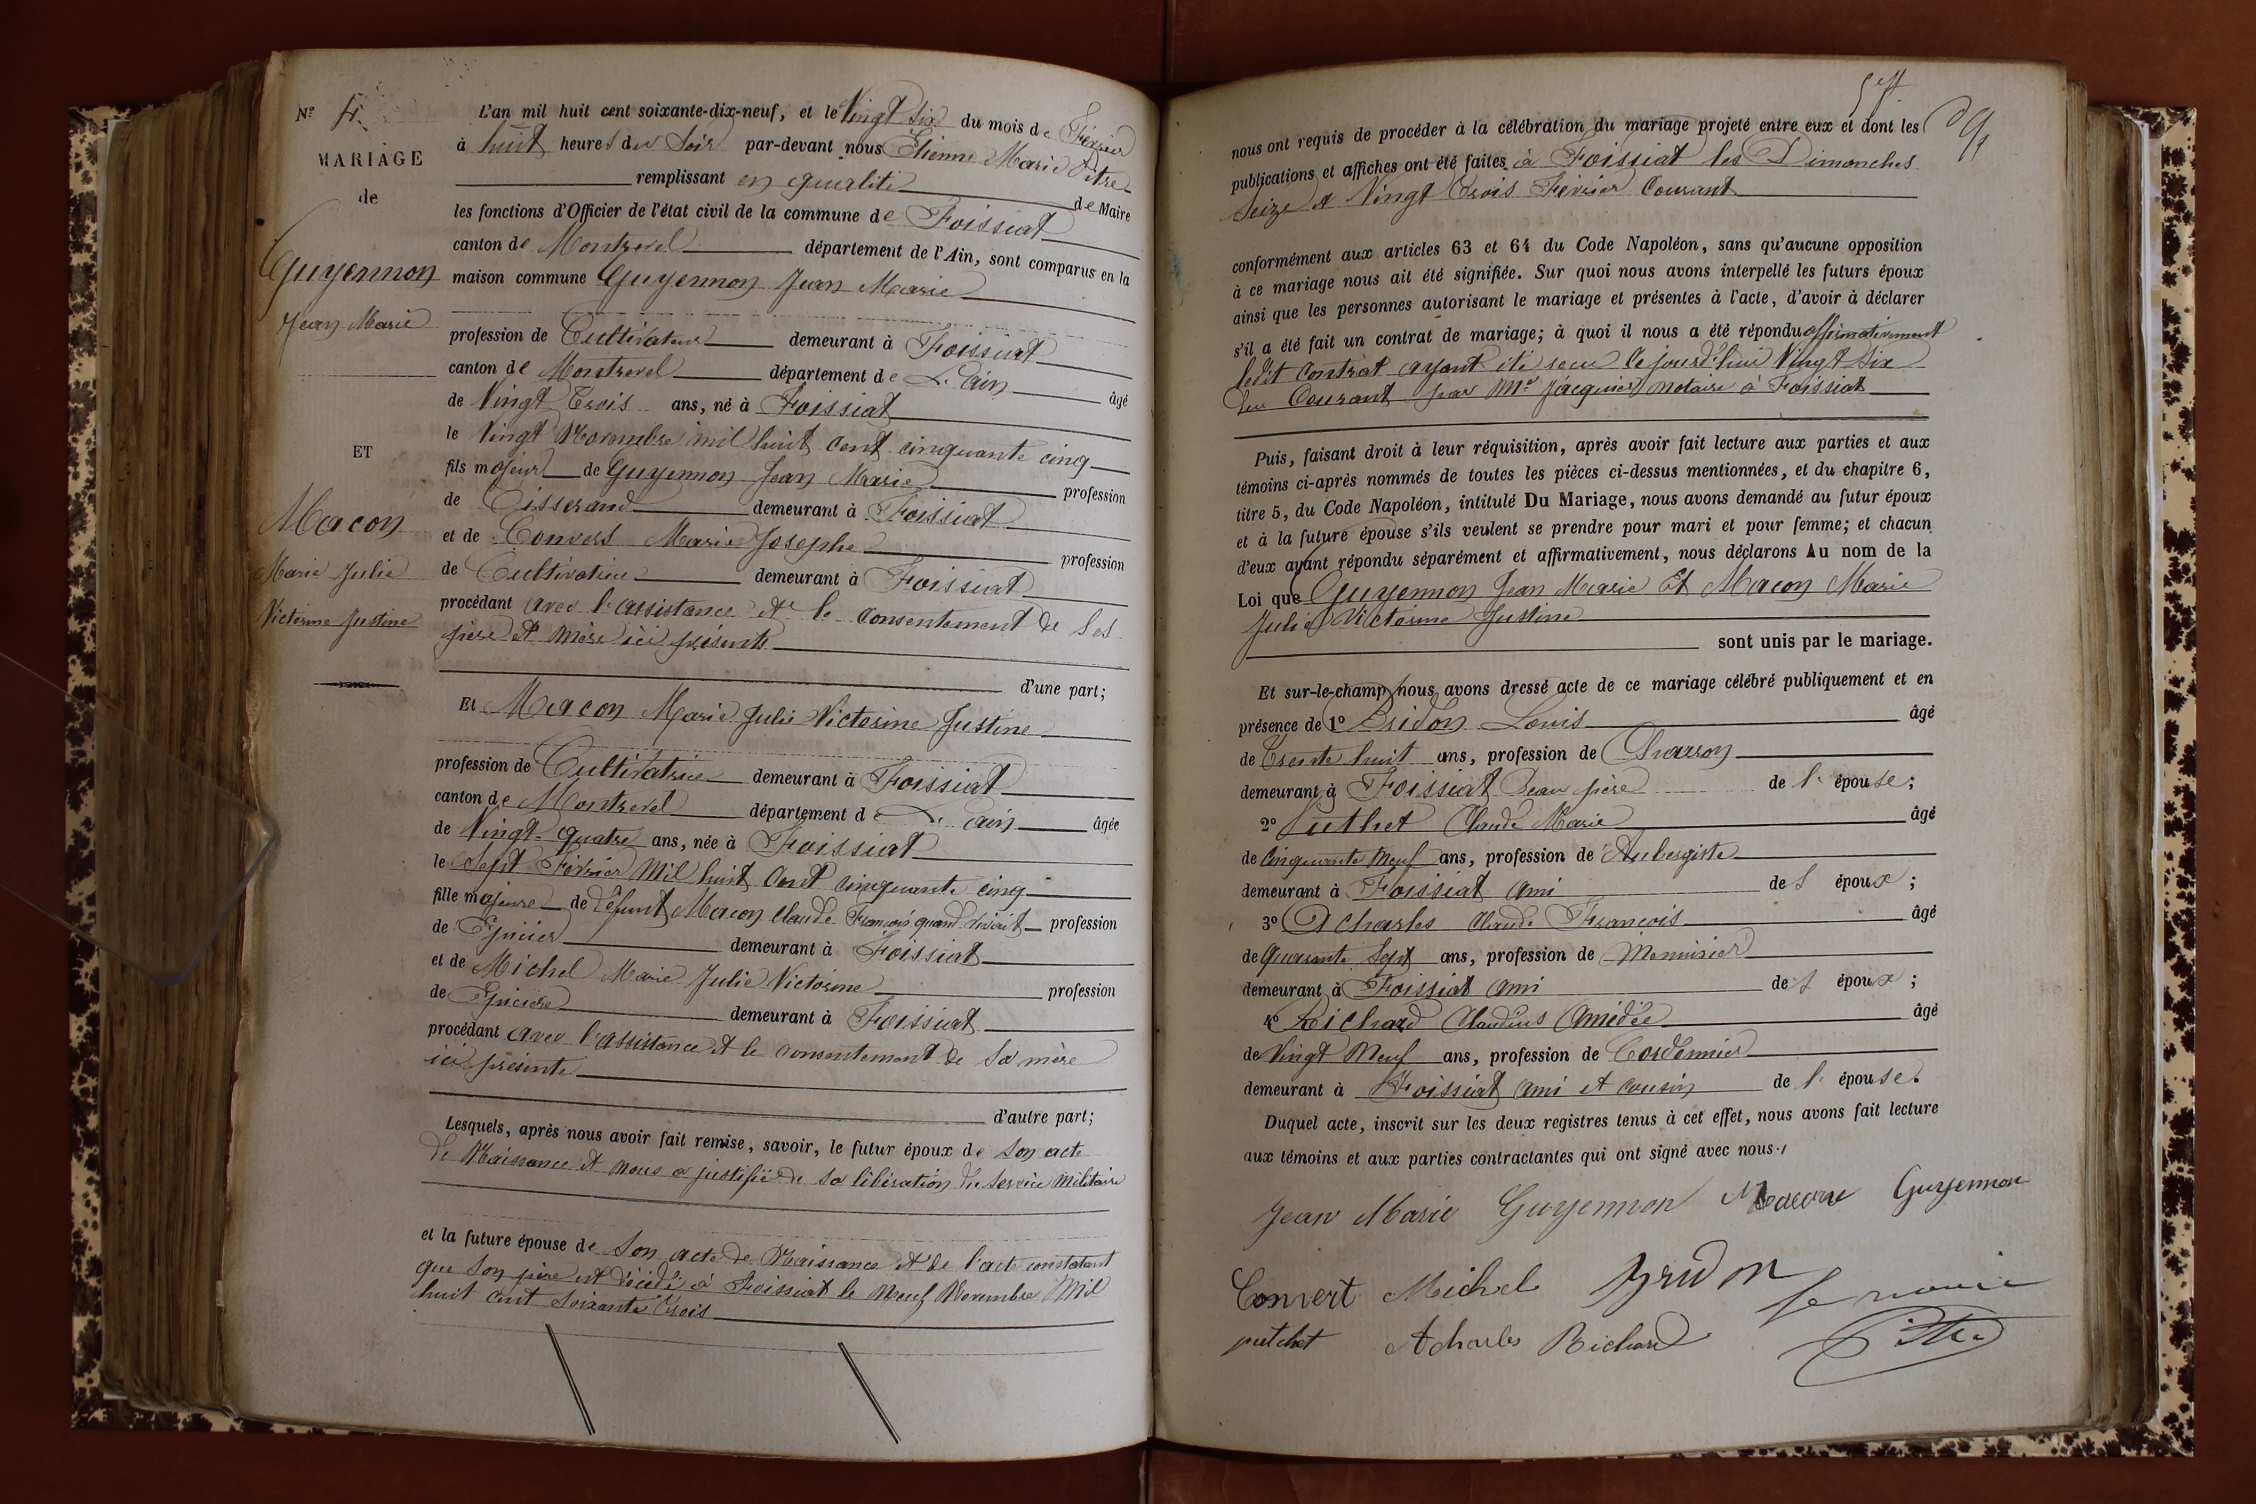 N° 4
MARIAGE
de
Guyennon
Jean Marie
ET
Macon
Marie Julie
Victorine Justine
L'an mil huit cent soixante-dix-neuf, et le Vingt Six du mois de Février
à huit heures du Soir par-devant nous Etienne Marie Pitre
remplissant en qualité de Maire
les fonctions d'Officier de l'état civil de la commune de Foissiat
canton de Montrevel département de l'Ain, sont comparus en la
maison commune Guyennon Jean Marie
profession de Cultivateur demeurant à Foissiat
canton de Montrevel département de L'ain âgé
de Vingt Trois ans, né à Foissiat
le Vingt Novembre mil huit cent cinquante cinq
fils majeur de Guyennon Jean Marie profession
de Tisserand demeurant à Foissiat
et de Convers Marie Josephe profession
de Cultivatrice demeurant à Foissiat
procédant avec l'assistance et le consentement de Ses
père et mère ici présents
d'une part;
Et Macon Marie Julie Victorine Justine
profession de Cultivatrice demeurant à Foissiat
canton de Montrevel département de L'ain âgée
de Vingt-quatre ans, née à Foissiat
le Sept Février Mil huit Cent cinquante cinq
fille majeure de défunt Macon Claude François quand vivait profession
de Epicier demeurant à Foissiat
et de Michel Marie Julie Victorine profession
de Epicière demeurant à Foissiat
procédant avec l'assistance et le consentement de Sa mère
ici présente
d'autre part;
Lesquels, après nous avoir fait remise, savoir, le futur époux de Son acte
de Naissance et nous a justifié de sa libération du service militaire
et la future épouse de Son acte de Naissance et de l'acte constatant
que Son père est décédé à Foissiat le Neuf Novembre Mil
huit cent soixante trois
nous ont requis de procéder à la célébration du mariage projeté entre eux et dont les
publications et affiches ont été faites à Foissiat les Dimanches
Seize et Vingt Trois Février Courant
conformément aux articles 63 et 64 du Code Napoléon, sans qu'aucune opposition
à ce mariage nous ait été signifiée. Sur quoi nous avons interpellé les futurs époux
ainsi que les personnes autorisant le mariage et présentes à l'acte, d'avoir à déclarer
s'il a été fait un contrat de mariage; à quoi il nous a été répondu affirmativement
ledit contrat ayant été recu Ce jourd'hui Vingt Six
du Courant par Me Jacquier notaire à Foissiat
Puis, faisant droit à leur réquisition, après avoir fait lecture aux parties et aux
témoins ci-après nommés de toutes les pièces ci-dessus mentionnées, et du chapitre 6,
titre 5, du Code Napoléon, intitulé Du Mariage, nous avons demandé au futur époux
et à la future épouse s'ils veulent se prendre pour mari et pour femme; et chacun
d'eux ayant répondu séparément et affirmativement, nous déclarons Au nom de la
Loi que Guyennon Jean Marie Et Macon Marie
Julie Victorine Justine
sont unis par le mariage.
Et sur-le-champ nous avons dressé acte de ce mariage célébré publiquement et en
présence de 1° Bridon Louis âgé
de Trente huit ans, profession de Charron
demeurant à Foissiat beau père de l' épouse;
2° Puthet Claude Marie âgé
de Cinquante Neuf ans, profession de Aubergiste
demeurant à Foissiat ami de l' époux;
3° Acharles Claude François âgé
de Quarante Sept ans, profession de Menuisier
demeurant à Foissiat ami de l' époux;
4° Richard Claudius Amédée âgé
de Vingt Neuf ans, profession de Cordonnier
demeurant à Foissiat ami et cousin de l' épouse.
Duquel acte, inscrit sur les deux registres tenus à cet effet, nous avons fait lecture
aux témoins et aux parties contractantes qui ont signé avec nous.
Jean Marie Guyennon Macon Guyennon
Convert Michel Bridon Le maire
putchet Acharles Richard Pitre